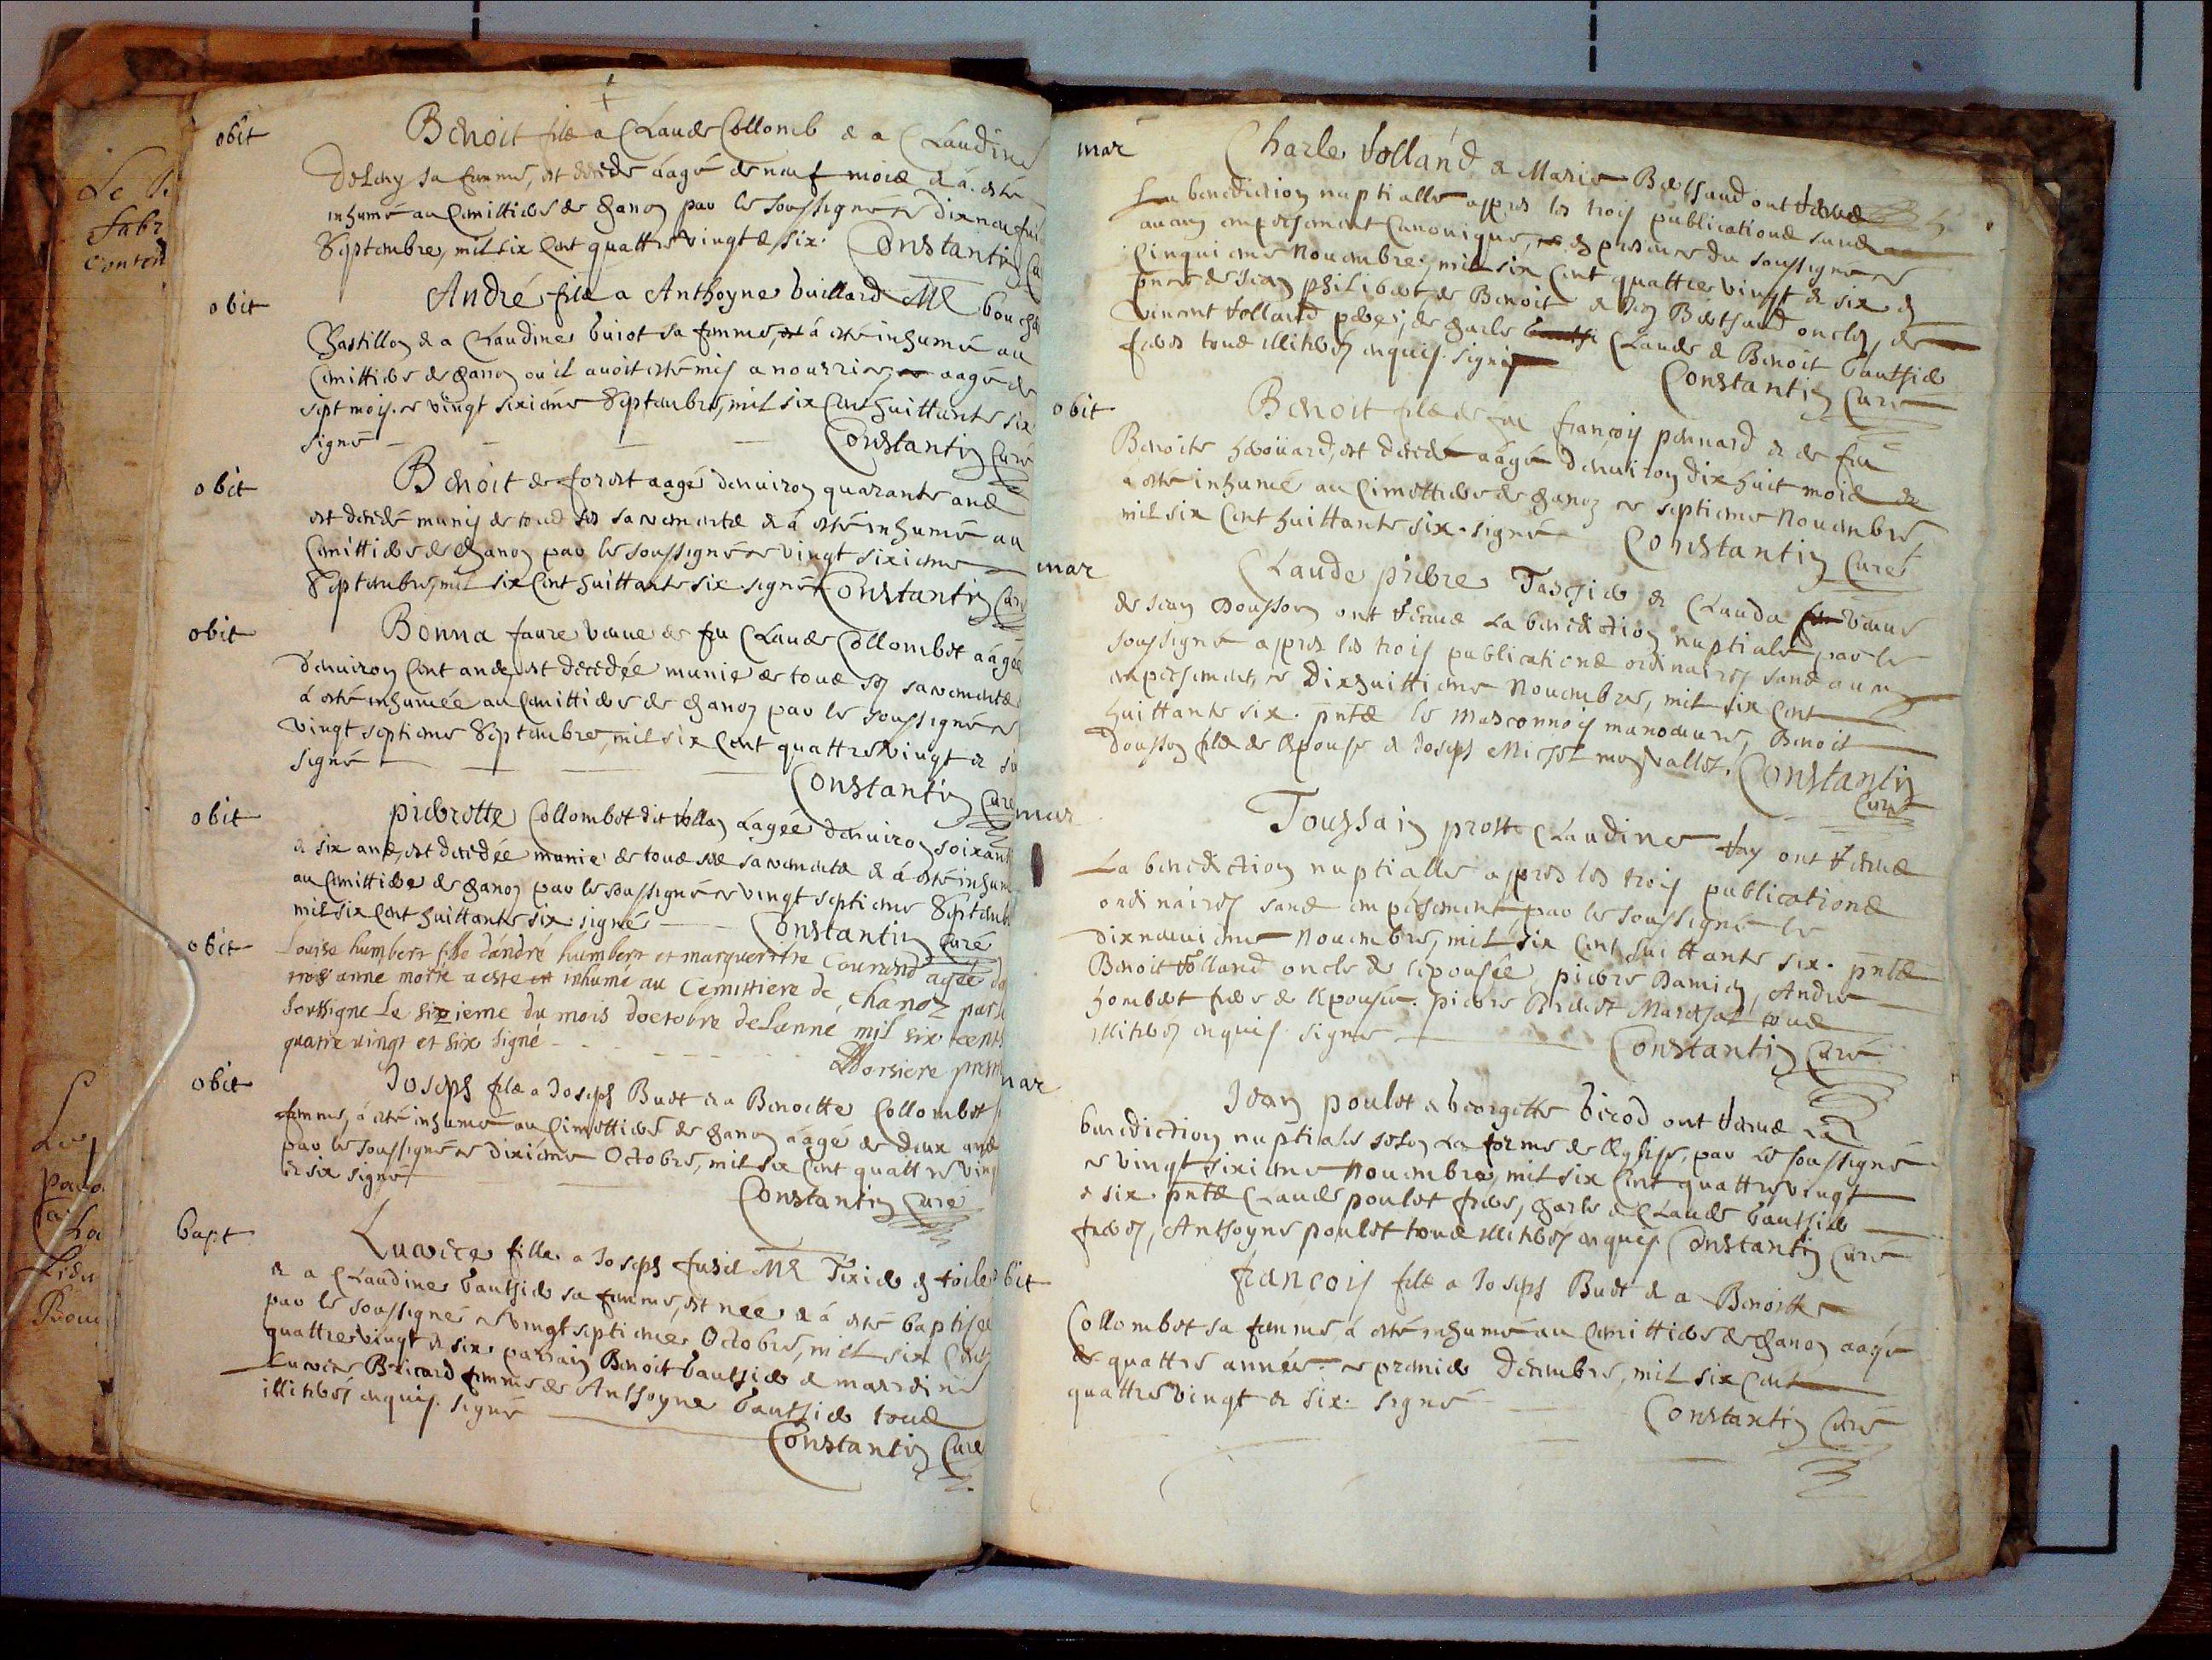 obit
Benoit fils a Claude Collomb & a Claudine
sa femme, est decede aagé de neuf mois & a esté
inhumé au Cimittiere de Chanoz par le soussigné le dixneufui
Septembre, mil six Cent quattre vingts six. Constantin Cu
obit
André fils a Anthoyne Vuillard Me bouche
Chastillon & a Claudine buiot sa femme, a esté inhumé au
Cimittiere de Chanoz ou il avoit esté mis a nourrir, aagé de
sept mois le vingt sixieme Septembre, mil six Cent huittante six
signé Constantin Curé
obit
Benoit de forest aagé denviron quarante ans
est decedé munis de tous ses sacrements & á esté inhumé au
Cimittiere de Chanoz par le soussigné le vingt sixieme
Septembre, mil six Cent huittante six signé Constantin Curé
obit
Bonna faure veuve de feu Claude Collombet aagée
denviron Cent ans, est decedée munie de tous ses sacrements
á esté inhumée au Cimittiere de Chanoz par le soussigné le
vingt septieme Septembre, mil six Cent quattre vingt & si
signé
Constantin Curé
obit
pierrette Collombet dit vollan aagée denviron soixant
& six ans, est decedée munie de tous ses sacrements & á esté inhum
au Cimittiere de Chanoz par le soussigné le vingt septieme Septemb
mil six Cent huittante six. signé Constantin Curé
obit
Louise humbert fille dándré humbert et marguerite agée de
anne morte a este inhumé au Cemittiere de chanoz par le
soussigne Le sixieme du mois doctobre de Lanne mil six cents
quatre vingt et six signé
obit
Joseph fils a Joseph Buet & a Benoitte Collombet
femme, á esté inhumé au Cimittiere de Chanoz aagé de deux ans
par le soussigné le dixiéme Octobre, mil six Cent quattre ving
& six signé
Constantin Curé
bapt
Lucrece fille a Joseph fusil Me Tixier en toile
& a Claudine bauthier sa femme, est née & á esté baptisée
par le soussigné le vingt septieme Octobre, mil six Cent
quattre vingt & six. parrain Benoit bauthier & marrine
Lucrece Bricard femme de Anthoyne bauthier tous
illitérés enquis. signé
Constantin Curé
mar
Charle vollánd & Marie Berthaud ont receus
La benediction nuptialle appres les trois publications sans
aucun empeschement Canonique, en presence du soussigné le
Cinquieme Novembre, mil six Cent quattre vingt & six en
pnce de Jean philibert, de Benoit & Jean Berthaud oncles, de
vincent volland pere, de charle Claude & Benoit bauthier
freres tous illitérés enquis. signé
Constantin Curé
obit
Benoit fils de feu françois penard & de feu
Benoite est decedé aagé denviron dix huit mois &
a esté inhumé au Cimettiere de chanoz le septieme Novembre
mil six Cent huittante six. signé Constantin Curé
mar
Claude pierre Taschier & Clauda veuve
de Jean Dousson ont receus La benediction nuptiale par le
soussigné appres les trois publications ordinaires sans aucun
empeschement, le Dixhuittieme Novembre, mil six Cent
huittante six. pnts le masconnois manoeuvre, Benoit
Dousson fils de lépouse & Joseph Michel mon vallet. Constantin
Curé
mar
Toussain prost & Claudine fay ont receus
La benediction nuptialle appres les trois publications
ordinaires sans empeschement par le soussigné le
dixneuvieme Novembre, mil six Cent huittante six. pnts
Benoit volland oncle de lépousée, pierre Damien, André
hombert frere de lépousée. pierre Mareschal tous
illitérés enquis. signé Constantin Curé
mar
Jean poulet & Georgette bicod ont receus La
benediction nuptiale selon La forme de léglise, par Le soussigné
le vingt sixieme Novembre, mil six Cent quattre vingt
& six. pnts Claude poulet frere, charle & Claude bauthier
freres, Anthoyne poulet tous illitérés enquis Constantin Curé
obit
françois fils a Joseph Buet & a Benoitte
Collombet sa femme, á esté inhumé au Cimittiere de Chanoz aagé
de quattre années. le premier Decembre, mil six Cent
quattre vingt & six. signé Constantin Curé